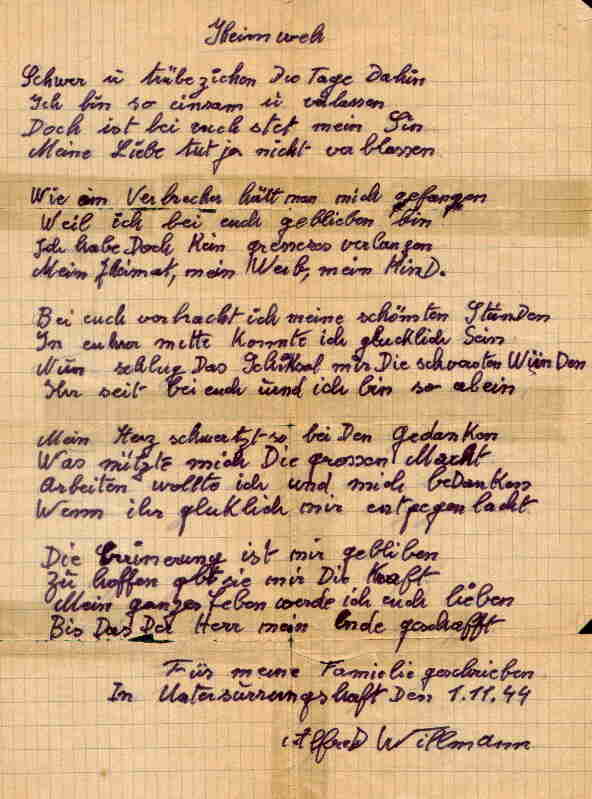 Heimweh
Schwer ü trübe zichen Die Tage Dahin
Ich bin so einsam ü verlassen
Doch ist bei euch stet mein Sin
Meine Liebe tut ja nicht verblassen
Wie ein Verbrecher hält man mich gefangen
Weil ich bei euch geblieben bin
Ich habe Doch Kein grösseres verlangen
Mein Heimat, mein Weib, mein KinD.
Bei euch verbracht ich meine schönsten Stunden
In eurer mitte Konnte ich glucklich Sein
Nun schlug Das Schiksal mir Die schwersten WünDen
Ihr seit bei euch und ich bin so alein
Mein Herz schmertzt so bei Den gedanKen
Was nützte mich Die grossen Macht
Arbeiten wollte ich und mich beDanken
Wenn ihr gluklich mir entgegen lacht
Die Errinerung ist mir gebliben
Zu hoffen gbt sie mir Die Kraft
Mein ganzes Leben werde ich euch lieben
Bis Das Der Herr mein Ende geschafft
Für meine Familie geschrieben
In Untersurrungshaft Den 1.11.44
Alfred Willmann